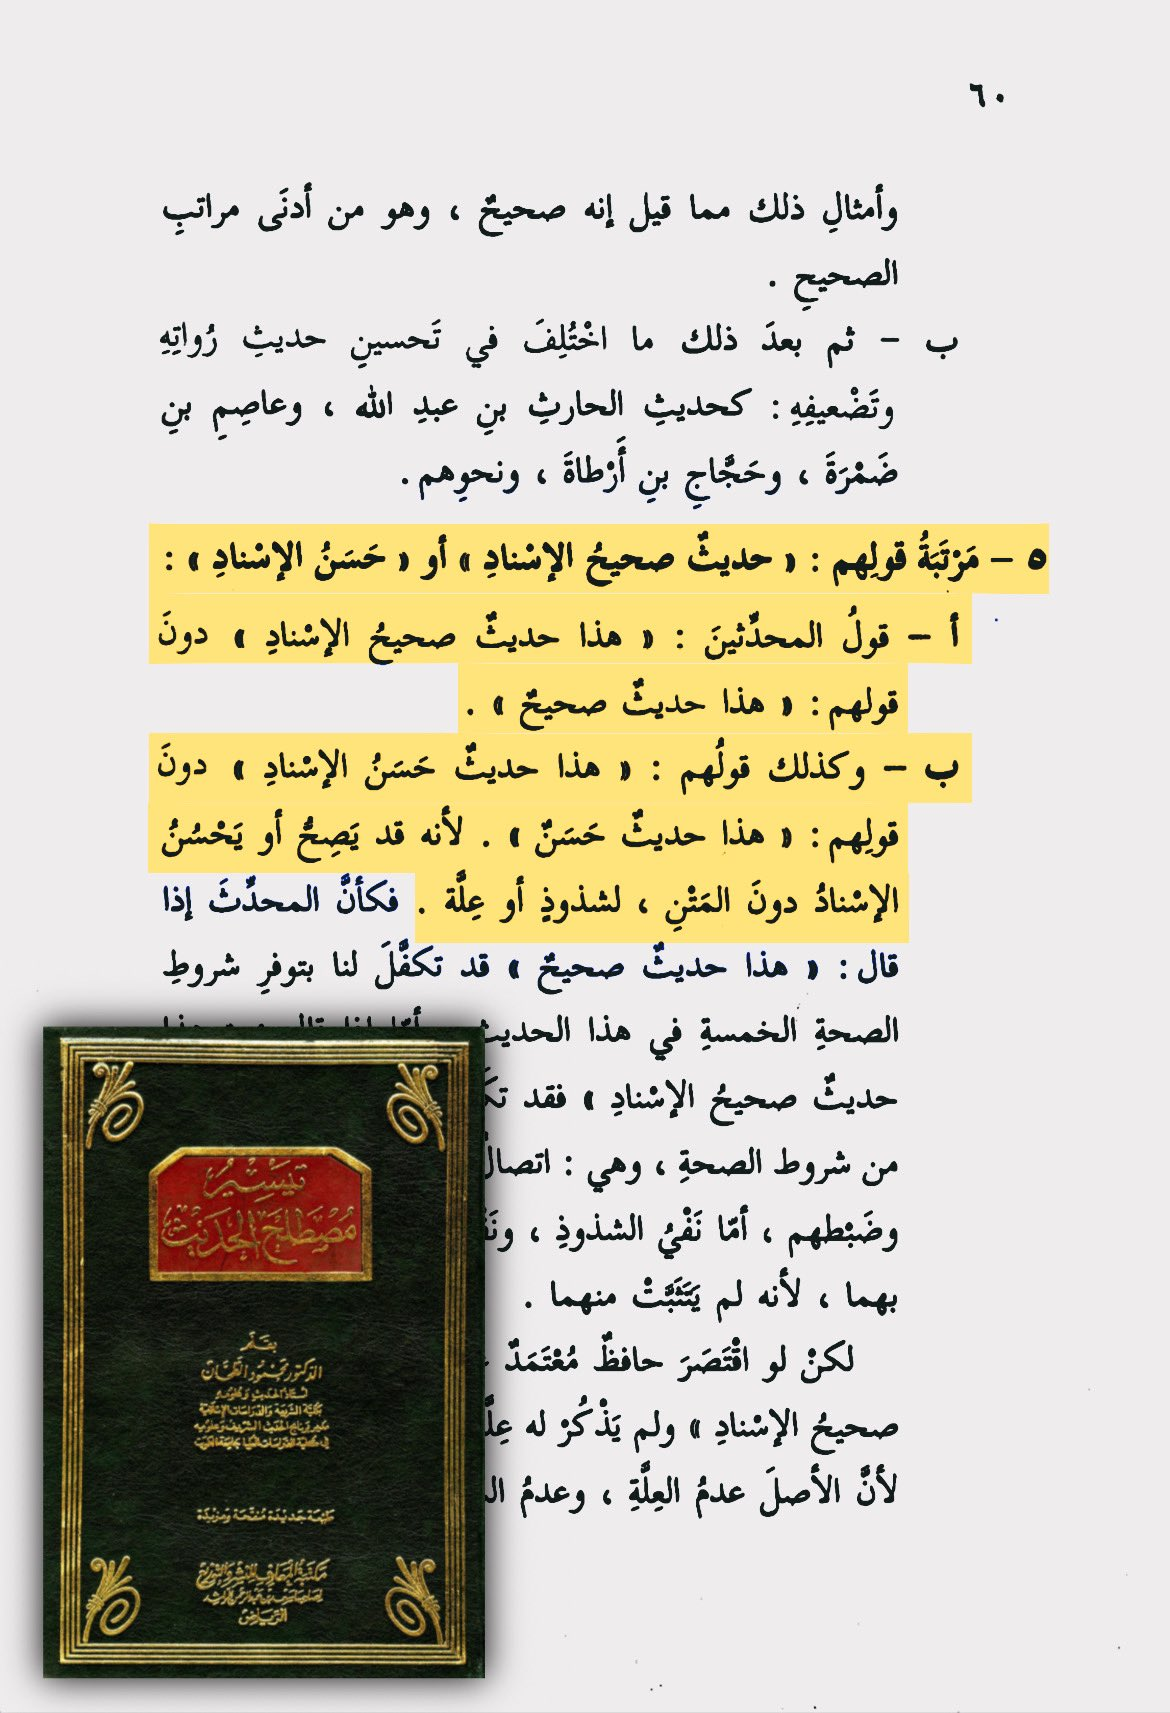 ٦٠
وأمثالِ ذلك مما قيل إنه صحيحٌ ، وهو من أدنَى مراتبِ
الصحيحِ .
ب – ثم بعدَ ذلك ما اخْتُلِفَ في تَحسينِ حديثِ رُواتِهِ
وتَضْعيفِهِ : كحديثِ الحارثِ بنِ عبدِ الله ، وعاصِمِ بنِ
ضَمْرَةَ ، وحَجَّاجِ بنِ أَرْطاةَ ، ونحوِهم .
٥ – مَرْتَبَةُ قولِهم : « حديثٌ صحيحُ الإسْنادِ » أو « حَسَنُ الإسْنادِ » :
أ – قولُ المحدِّثينَ : « هذا حديثٌ صحيحُ الإسْنادِ » دونَ
قولهم : « هذا حديثٌ صحيحٌ » .
ب – وكذلك قولُهم : « هذا حديثٌ حَسَنُ الإسْنادِ » دونَ
قولِهم : « هذا حديثٌ حَسَنٌ » . لأنه قد يَصِحُّ أو يَحْسُنُ
الإسْنادُ دونَ المَتْنِ ، لشذوذٍ أو عِلَّة . فكأنَّ المحدِّثَ إذا
قال : « هذا حديثٌ صحيحٌ » قد تكفَّلَ لنا بتوفرِ شروطِ
الصحةِ الخمسةِ في هذا الحديث
حديثٌ صحيحُ الإسْنادِ » فقد
من شروط الصحةِ ، وهي : اتصال
وضَبْطهم ، أمّا نَفْيُ الشذوذِ ،
بهما ، لأنه لم يَتَثَبَّتْ منهما .
لكنْ لو اقْتَصَرَ حافظٌ مُعْتَمَدٌ
صحيحُ الإسْنادِ » ولم يَذْكُرْ له
لأنَّ الأصلَ عدمُ العِلَّةِ ، وعدمُ
تيسير
مصطلح الحديث
بقلم
الدكتور محمود الطحان
أستاذ الحديث وعلومه
بكلية الشريعة والدراسات الإسلامية
طبعة جديدة منقحة ومزيدة
مكتبة المعارف للنشر والتوزيع
لصاحبها سعد بن عبد الرحمن الراشد
الرياض